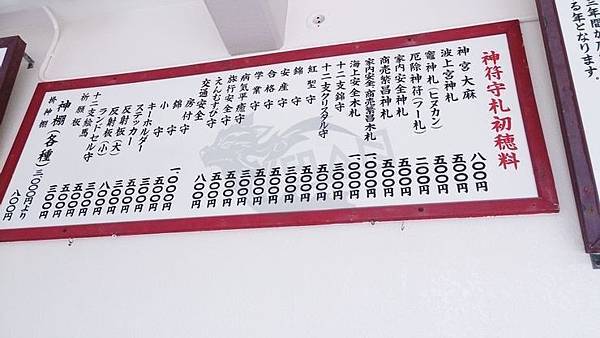 る年となります。
神符守札初穂料
神宮大麻 八〇〇円
波上宮神札 五〇〇円
竈神札(ヒヌカン) 五〇〇円
厄除神符(フー札) 二〇〇円
家内安全神札 五〇〇円
商売繁昌神札 五〇〇円
家内安全・商売繁昌木札 一、〇〇〇円
海上安全木札 一、〇〇〇円
十二支錦守
十二支クリスタル守 五〇〇円
紅型守 五〇〇円
錦守 五〇〇円
安産守 五〇〇円
合格守 五〇〇円
学業守 五〇〇円
病気平癒守 五〇〇円
旅行安全守 五〇〇円
えんむすび守 五〇〇円
交通安全
房付守 八〇〇円
錦守 一、〇〇〇円
小守 五〇〇円
キーホルダー 五〇〇円
ステッカー
反射板(大)
反射板(小)
ランドセル守
十二支絵馬 五〇〇円
祈願板
神棚(各種) 三、〇〇〇円より
神棚 八〇〇円